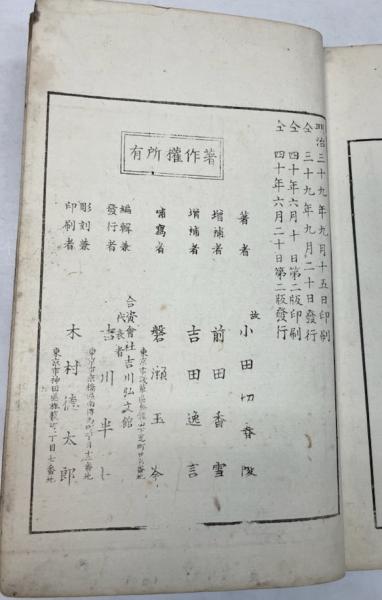 明治三十九年九月十五日印刷
仝 三十九年九月二十日發行
仝 四十年六月十日第二版印刷
仝 四十年六月二十日第二版發行
著作權所有
著者 故 小田切春陵
增補者 前田香雪
增補者 吉田逸言
補寫者 磐瀬玉岑
東京市淺草區
編輯兼發行者 合資會社吉川弘文館
代表者 吉川半七
東京市京橋區南傳馬町一丁目十二番地
彫刻兼印刷者 木村德太郎
東京市神田區 丁目七番地